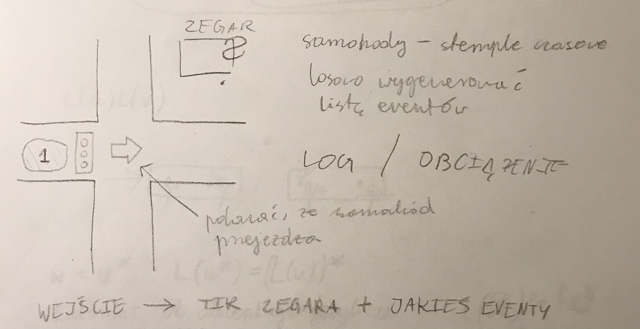 ZEGAR
?
samohody – stemple czasowe
losowo wygenerować
listę eventów
1
LOG / OBCIĄŻENIE
pokazać, że samohód
przejeżdża
WEJŚCIE → TIK ZEGARA + JAKIEŚ EVENTY